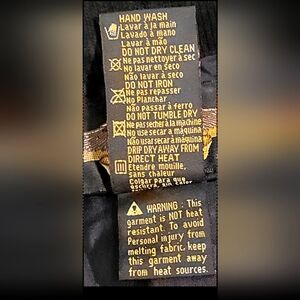 HAND WASH
Lavar à la main
Lavado à mano
Lavar à mão
DO NOT DRY CLEAN
Ne pas nettoyer à sec
No lavar en seco
Não lavar à seco
DO NOT IRON
Ne pas repasser
No Planchar
Não passar à ferro
DO NOT TUMBLE DRY
Ne pas secher à la machine
No use secar a máquina
Não usar secar à máquina
DRIP DRY AWAY FROM
DIRECT HEAT
Etendre mouille,
sans chaleur
Colgar para que
sin calor
WARNING : This
garment is NOT heat
resistant. To avoid
Personal injury from
melting fabric, keep
this garment away
from heat sources.